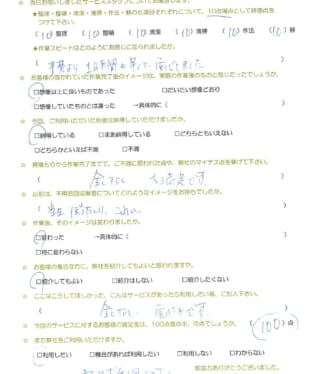 ★ 当日お伺いしましたサービススタッフについてお伺いします。
★整理・整頓・清潔・清掃・作法・躾の6項目それぞれについて、10点満点として評価点を
つけて下さい。
(10) 整理 (10) 整頓 (10) 清潔 (10) 清掃 (10) 作法 (10) 躾
★作業スピードはどのようにお感じになられましたか。
☆ お客様の描かれていた作業完了後のイメージは、実際の作業後のものと同じだったでしょうか。
□想像以上に良いものであった □だいたい想像どおり
□想像していたものとは違った →具体的に(
☆ 今回、ご利用いただいた料金は納得していただけましたか。
□納得している □まあ納得している □どちらともいえない
□どちらかといえば不満 □不満
☆ 見積もりから作業完了までで、ご不満に思われた点や、弊社のマイナス点を挙げて下さい。
( 全くなし 大満足です。 )
☆ 以前は、不用品回収業者についてどのようなイメージをお持ちでしたか。
☆ 作業後、そのイメージは変わりましたか。
□変わった →具体的に(
□特に変わらない
☆ お客様の身近な方に、弊社を紹介してもよいと思われますか。
□紹介してもよい □紹介はしない □紹介したくない
☆ ここはこうしてほしかった、こんなサービスがあったら利用したい等、ご記入下さい。
( 全くなし )
☆ 今回のサービスに対するお客様の満足度は、100点満点中、何点でしょうか。
( 100 ) 点
☆ また弊社をご利用いただけますか。
□利用したい □機会があれば利用したい □利用しない □わからない
ご協力ありがとうございました。